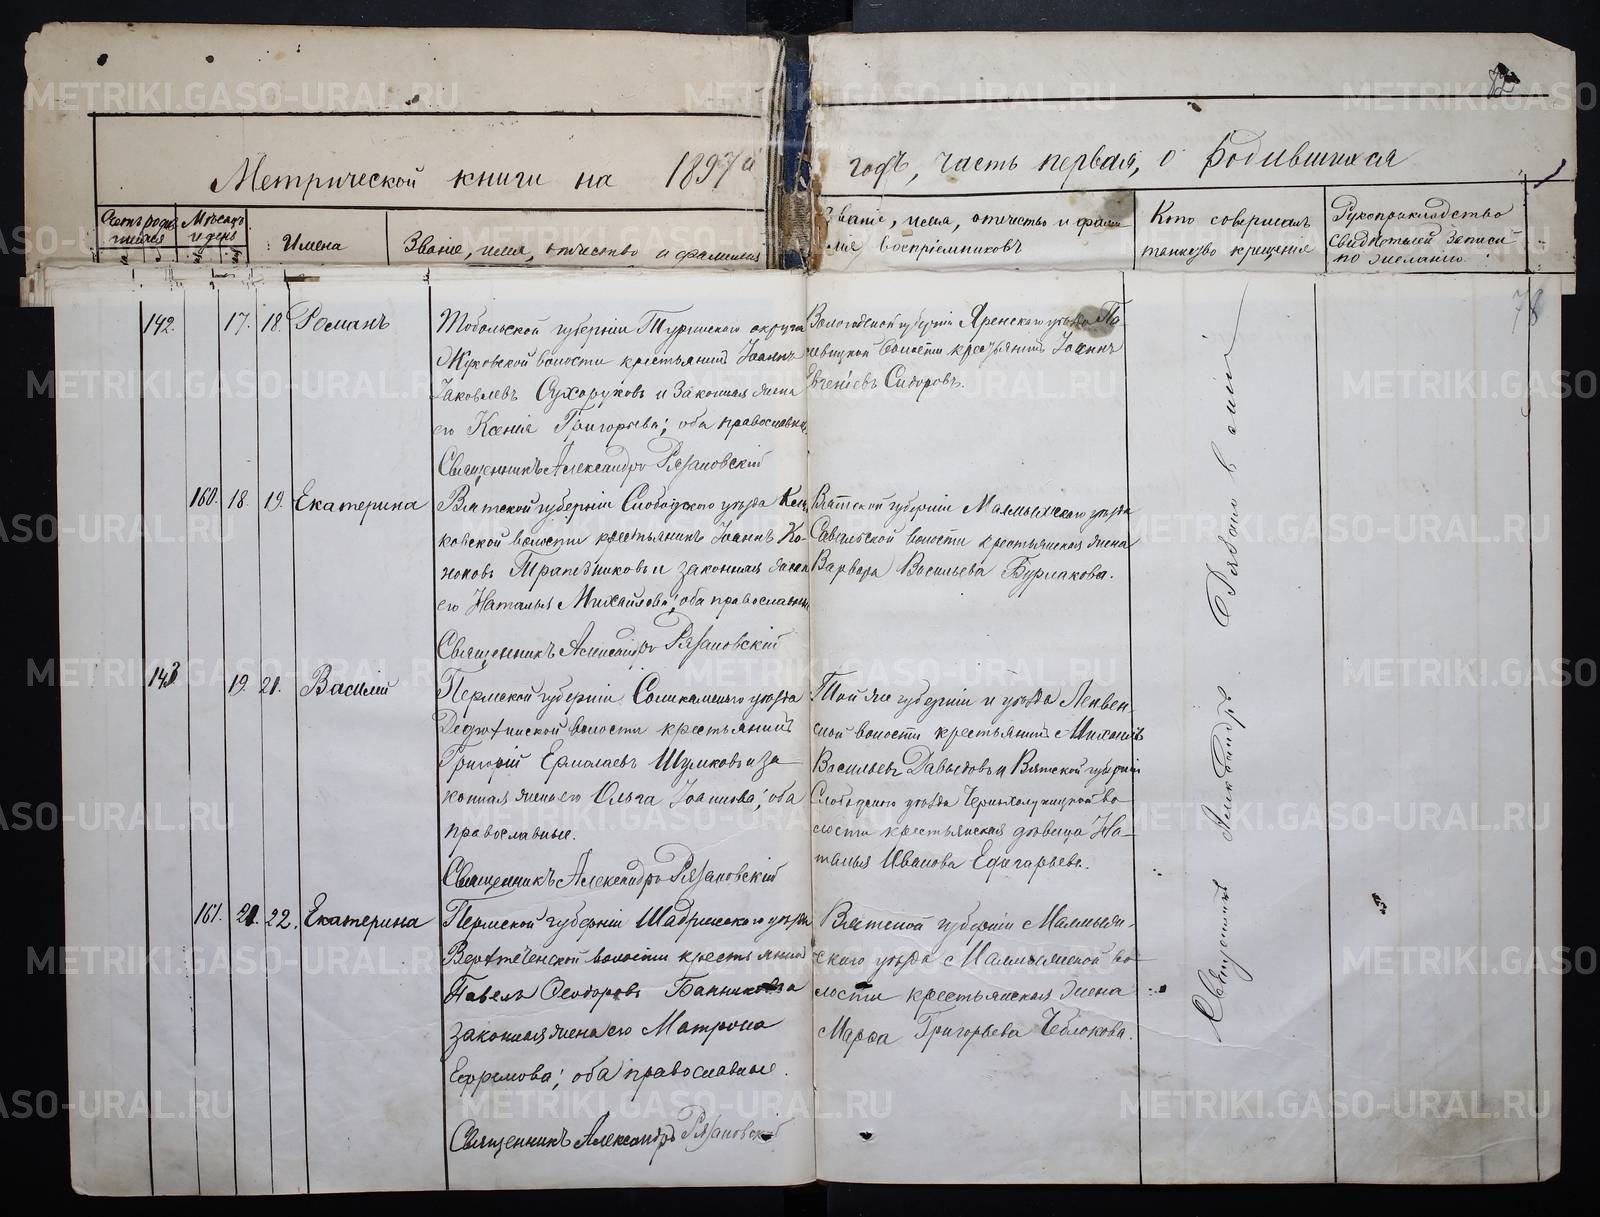 Метрической книги на 1897й
годъ, часть первая, о родившихся
Счетъ родившихся
Мѣсяцъ и день
Имена
Званіе, имя, отчество и фамилія
Званіе, имя, отчество и фами
лія воспріемниковъ
Кто совершалъ
таинство крещенія
Рукоприкладство
свидѣтелей записи
по желанію
78
142. 17. 18. Романъ
Тобольской губерніи Туринскаго округа
Жуковской волости крестьянинъ Іоаннъ
Іаковлевъ Сухоруковъ и законная жена
его Ксенія Григорьева; оба православны
Священникъ Александръ Рязановскій
Вологодской губерніи Яренскаго уѣзда
волости крестьянинъ Іоаннъ
Евгеніевъ Сидоровъ.
160. 18. 19. Екатерина
Вятской губерніи Слободскаго уѣзда
ковской волости крестьянинъ Іоаннъ Ко-
ноновъ Трапезниковъ и законная жена
его Наталья Михайлова; оба православны
Священникъ Александръ Рязановскій
Вятской губерніи Малмыжскаго уѣзда
Савальской волости крестьянская жена
Варвара Васильева Бурлакова.
143 19. 21. Василій
Пермской губерніи Соликамскаго уѣзда
волости крестьянинъ
Григорій Ермолаевъ Шумковъ и за
конная жена его Ольга Іоаннова; оба
православные.
Священникъ Александръ Рязановскій
Той же губерніи и уѣзда Ленвен-
ской волости крестьянинъ Михаилъ
Васильевъ Давыдовъ и Вятской губерніи
Слободскаго уѣзда Чернохолуницкой во
лости крестьянская дѣвица На-
талья Иванова Едигарьева.
161. 21. 22. Екатерина
Пермской губерніи Шадринскаго уѣзда
Верхтеченской волости крестьянинъ
Павелъ Ѳеодоровъ Банниковъ и
законная жена его Матрона
Ефремова; оба православные.
Священникъ Александръ Рязановскій
Вятской губерніи Малмыж-
скаго уѣзда Малмыжской во
лости крестьянская жена
Марѳа Григорьева Чеблокова.
Священникъ Александръ Рязановскій
METRIKI.GASO-URAL.RU